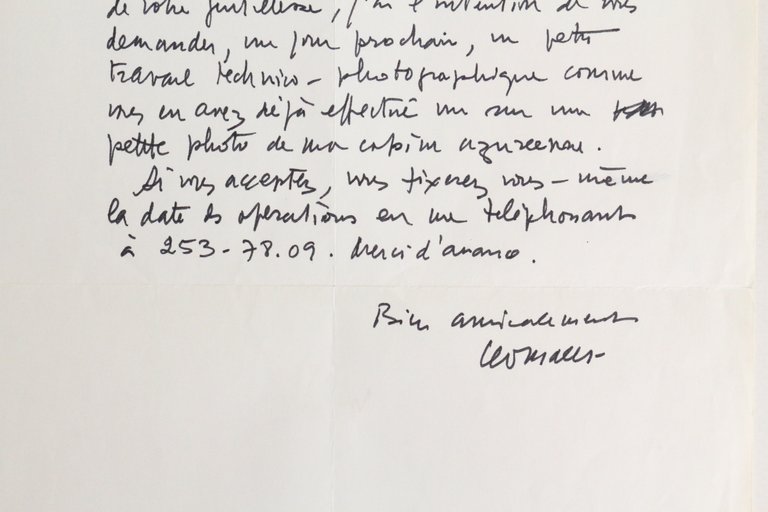 de votre gentillesse, j'ai l'intention de vous
demander, un jour prochain, un petit
travail technico-photographique comme
vous en avez déjà effectué un sur une
petite photo de ma copine azuréenne.
Si vous acceptez, vous fixerez vous-même
la date des opérations en me téléphonant
à 253-78.09. Merci d'avance.
Bien amicalement
Léo Malet